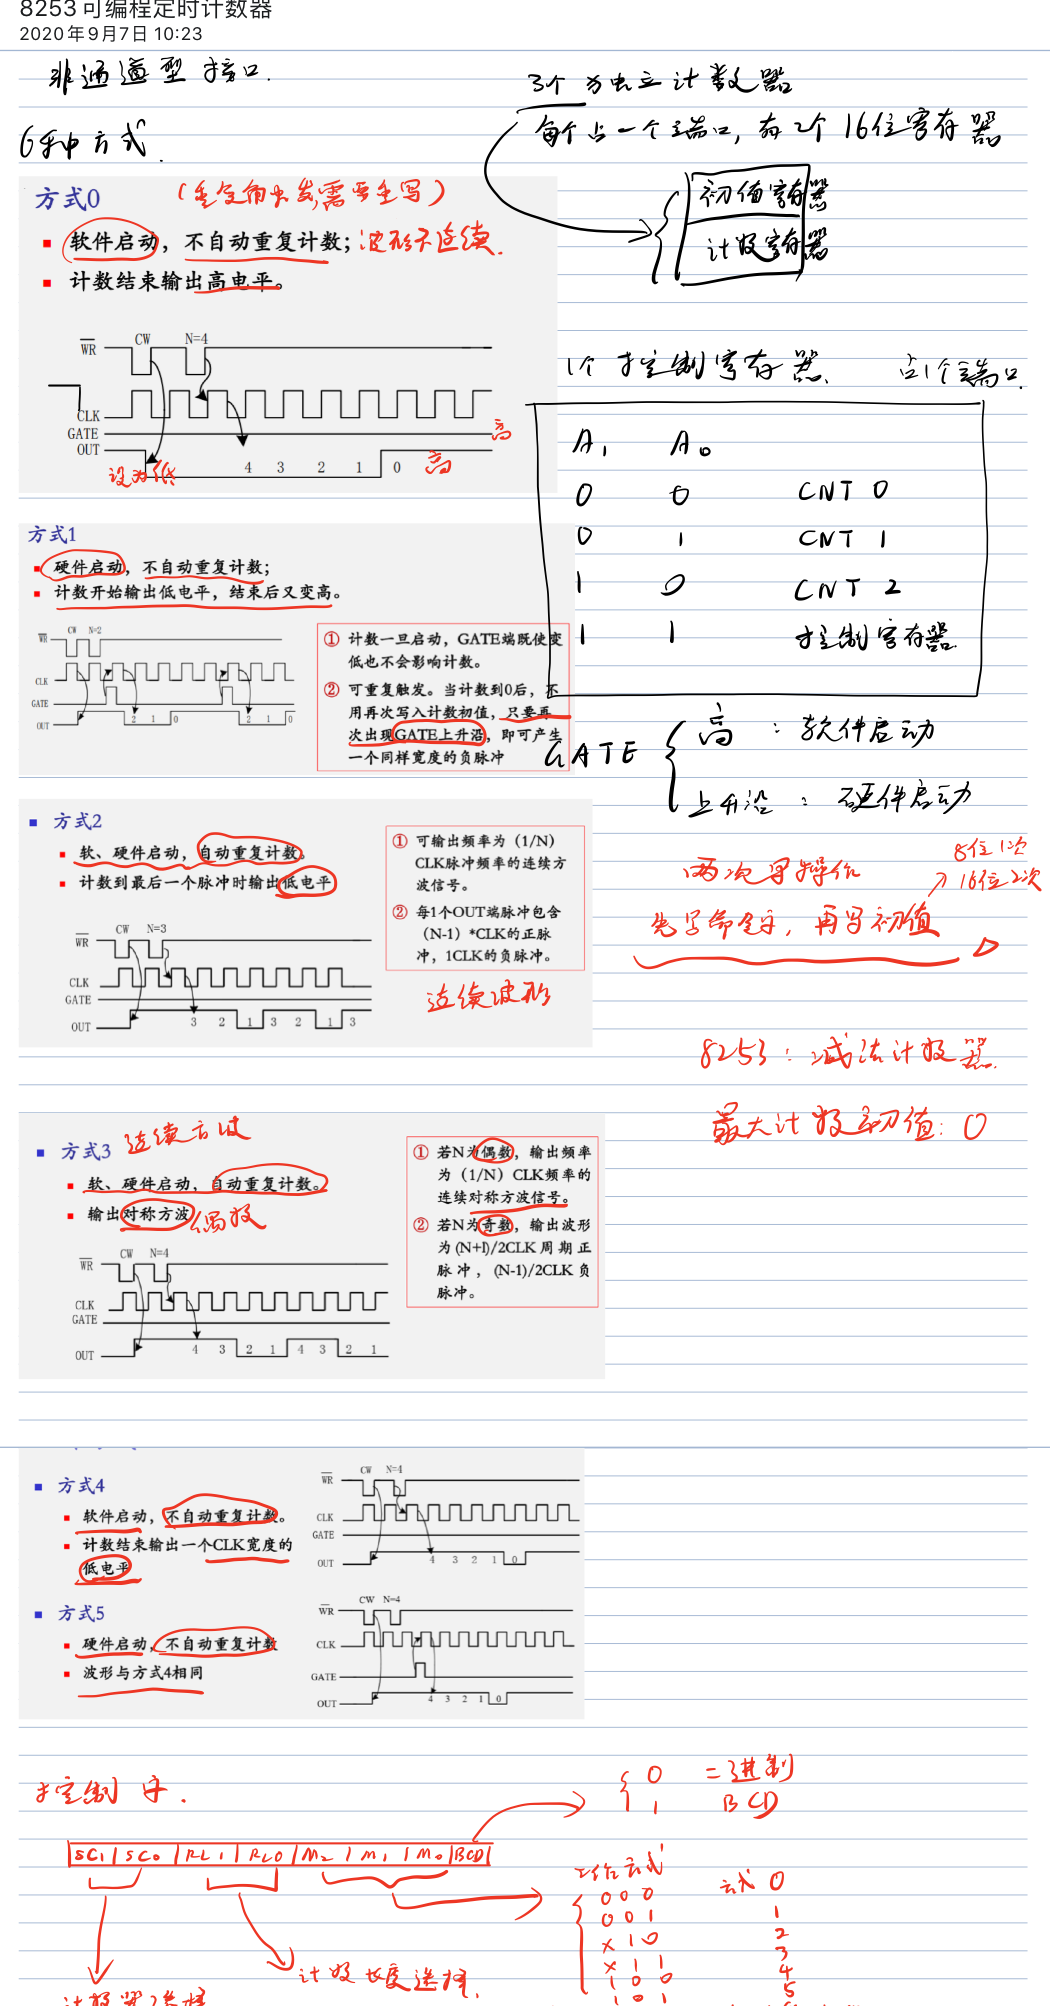 8253可编程定时计数器
2020年9月7日 10:23
非通道型接口.
3个独立计数器
每个占一个端口, 有2个16位寄存器
初值寄存器
计数寄存器
6种方式.
方式0
需要重写)
软件启动，不自动重复计数; 波形不连续.
计数结束输出高电平。
WR CW N=4
CLK
GATE 高
OUT 4 3 2 1 0 高
设为低
1个控制寄存器. 占1个端口.
A1 A0
0 0 CNT 0
0 1 CNT 1
1 0 CNT 2
1 1 控制寄存器
方式1
硬件启动，不自动重复计数;
计数开始输出低电平，结束后又变高。
WR CW N=2
CLK
GATE
OUT 2 1 0 2 1 0
① 计数一旦启动，GATE端既使变
低也不会影响计数。
② 可重复触发。当计数到0后，不
用再次写入计数初值，只要再
次出现GATE上升沿，即可产生
一个同样宽度的负脉冲
GATE
高 : 软件启动
上升沿 : 硬件启动
方式2
软、硬件启动，自动重复计数。
计数到最后一个脉冲时输出低电平
WR CW N=3
CLK
GATE
OUT 3 2 1 3 2 1 3
① 可输出频率为（1/N）
CLK脉冲频率的连续方
波信号。
② 每1个OUT端脉冲包含
（N-1）*CLK的正脉
冲，1CLK的负脉冲。
连续波形
两次写操作
8位1次
16位2次
先写命令字, 再写初值
8253: 减法计数器.
最大计数初值: 0
方式3 连续方波
软、硬件启动，自动重复计数。
输出对称方波 偶数
WR CW N=4
CLK
GATE
OUT 4 3 2 1 4 3 2 1
① 若N为偶数，输出频率
为（1/N）CLK频率的
连续对称方波信号。
② 若N为奇数，输出波形
为(N+1)/2CLK周期正
脉冲，(N-1)/2CLK负
脉冲。
方式4
软件启动，不自动重复计数。
计数结束输出一个CLK宽度的
低电平
WR CW N=4
CLK
GATE
OUT 4 3 2 1 0
方式5
硬件启动，不自动重复计数
波形与方式4相同
WR CW N=4
CLK
GATE
OUT 4 3 2 1 0
控制字.
0 二进制
1 BCD
SC1 SC0 RL1 RL0 M2 M1 M0 BCD
工作方式
000 方式 0
001 1
X10 2
X11 3
100 4
101 5
计数长度选择.
计数器选择